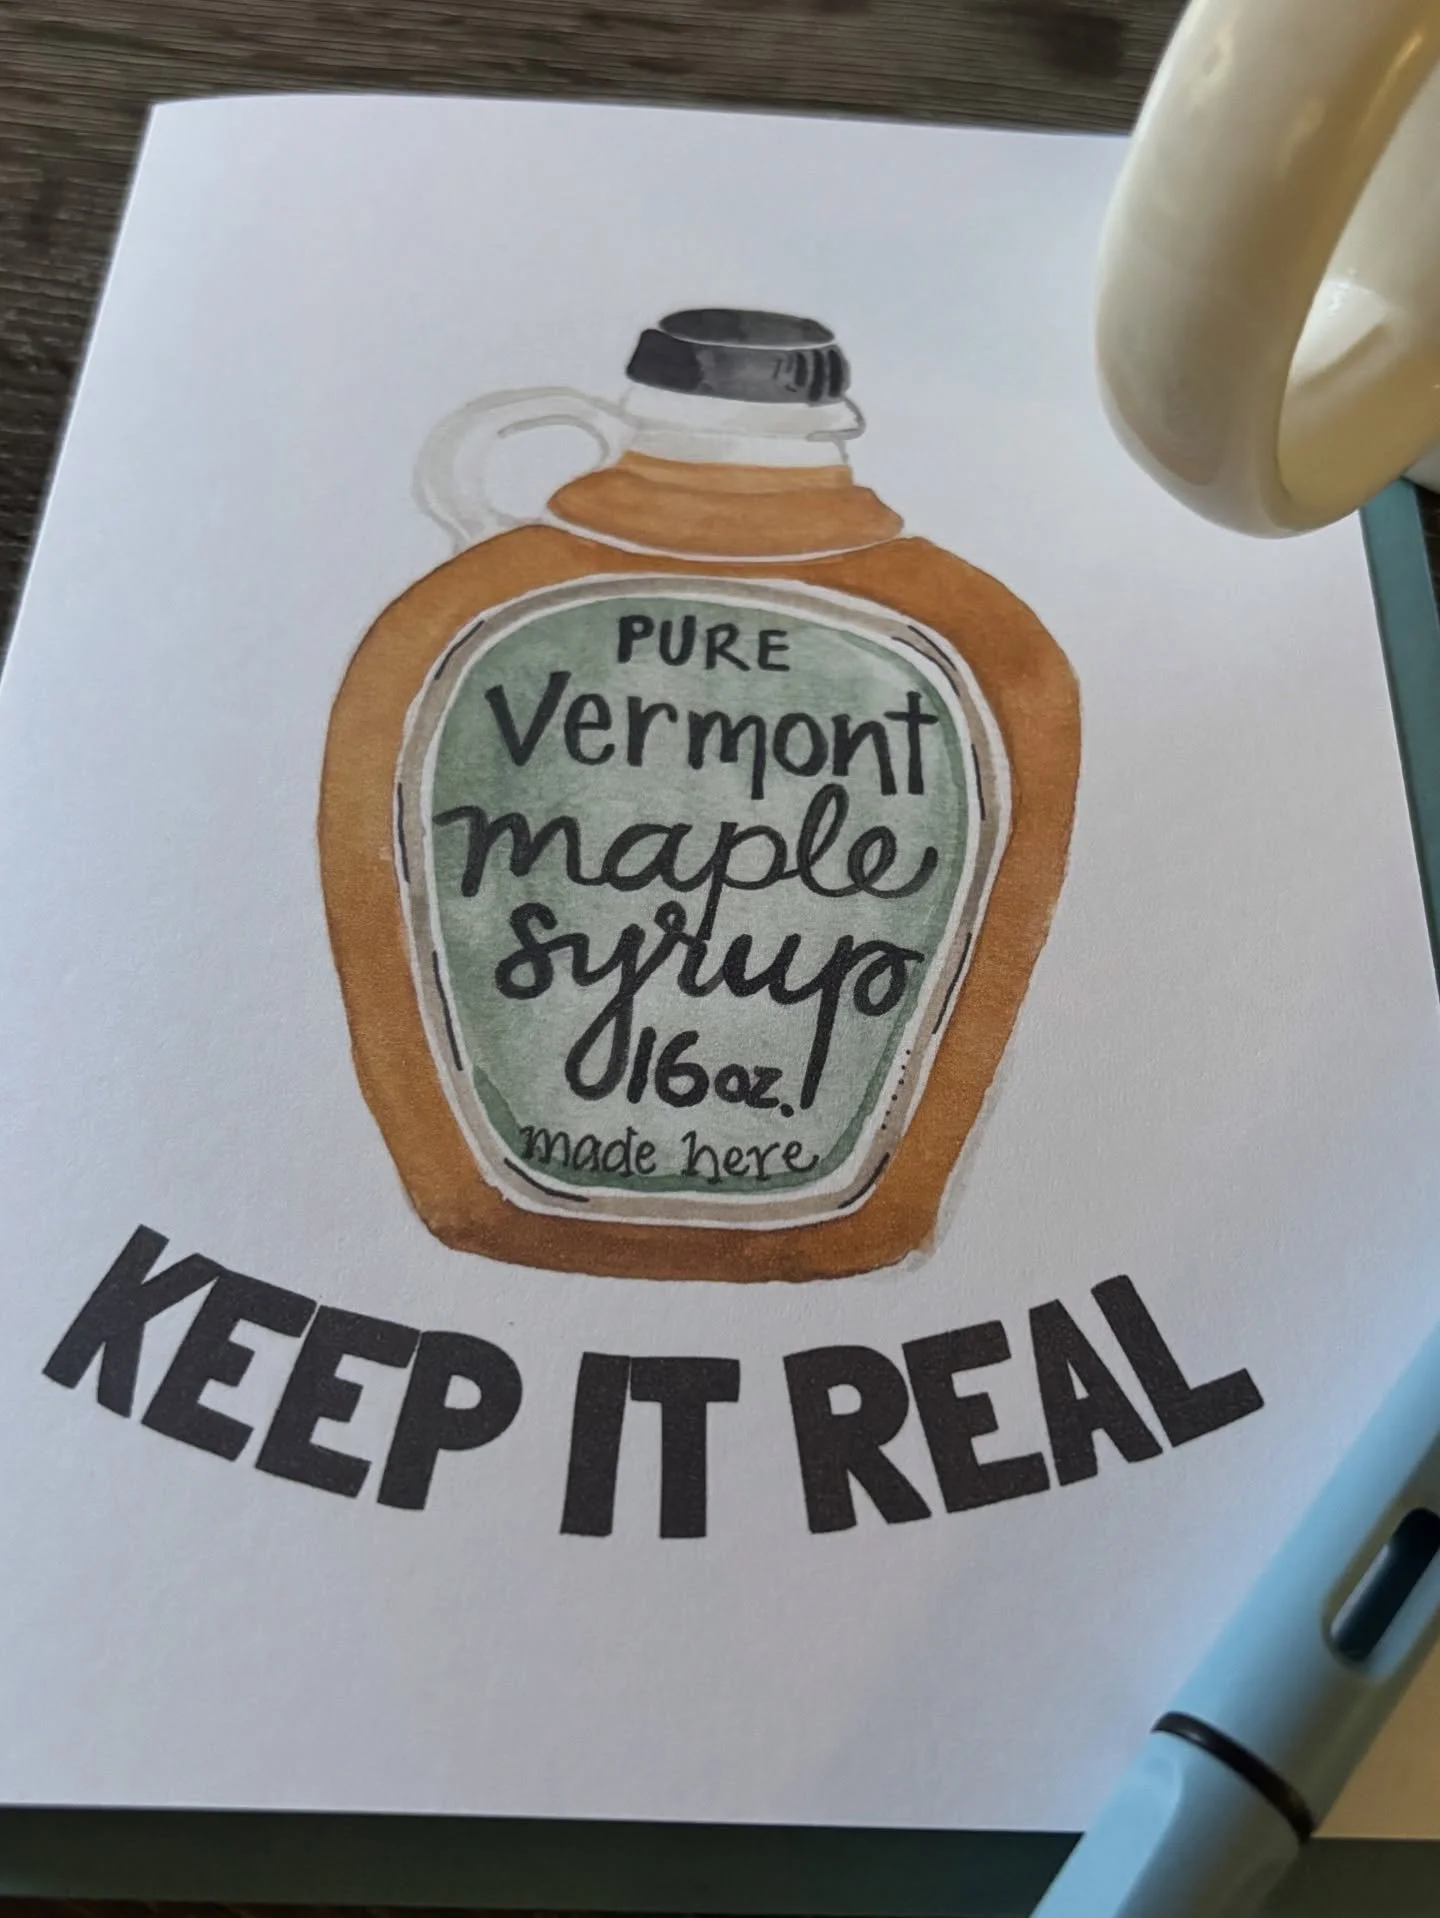 PURE
Vermont
maple
syrup
16 oz.
made here
KEEP IT REAL